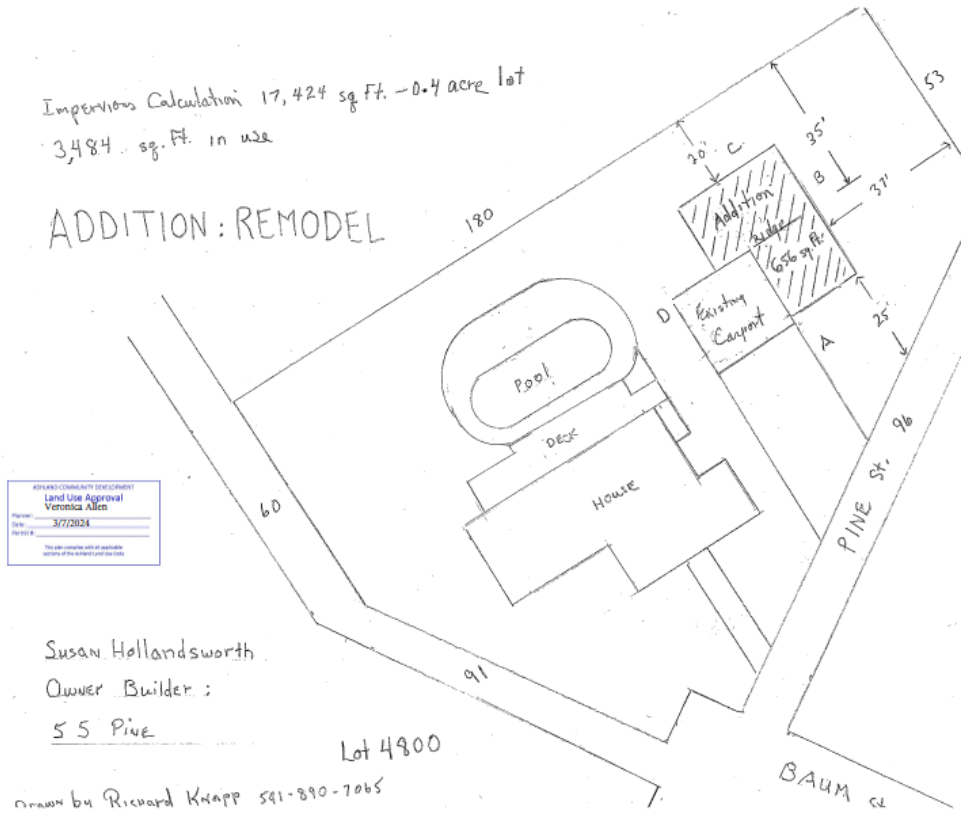 Impervious Calculation 17,424 sq ft. - 0.4 acre lot
3,484 sq. ft. in use
ADDITION: REMODEL
180
53
20'
C
35'
B
37'
Addition
Ridge
656 sq. ft.
D
Existing
Carport
A
25'
Pool
DECK
HOUSE
PINE St. 96
60
ASHLAND COMMUNITY DEVELOPMENT
Land Use Approval
Veronica Allen
Planner:
Date: 3/7/2024
Permit #:
This plan complies with all applicable
sections of the Ashland Land Use Code
91
Susan Hollandsworth
Owner Builder:
55 Pine
Lot 4800
Drawn by Richard Knapp 541-890-7065
BAUM St